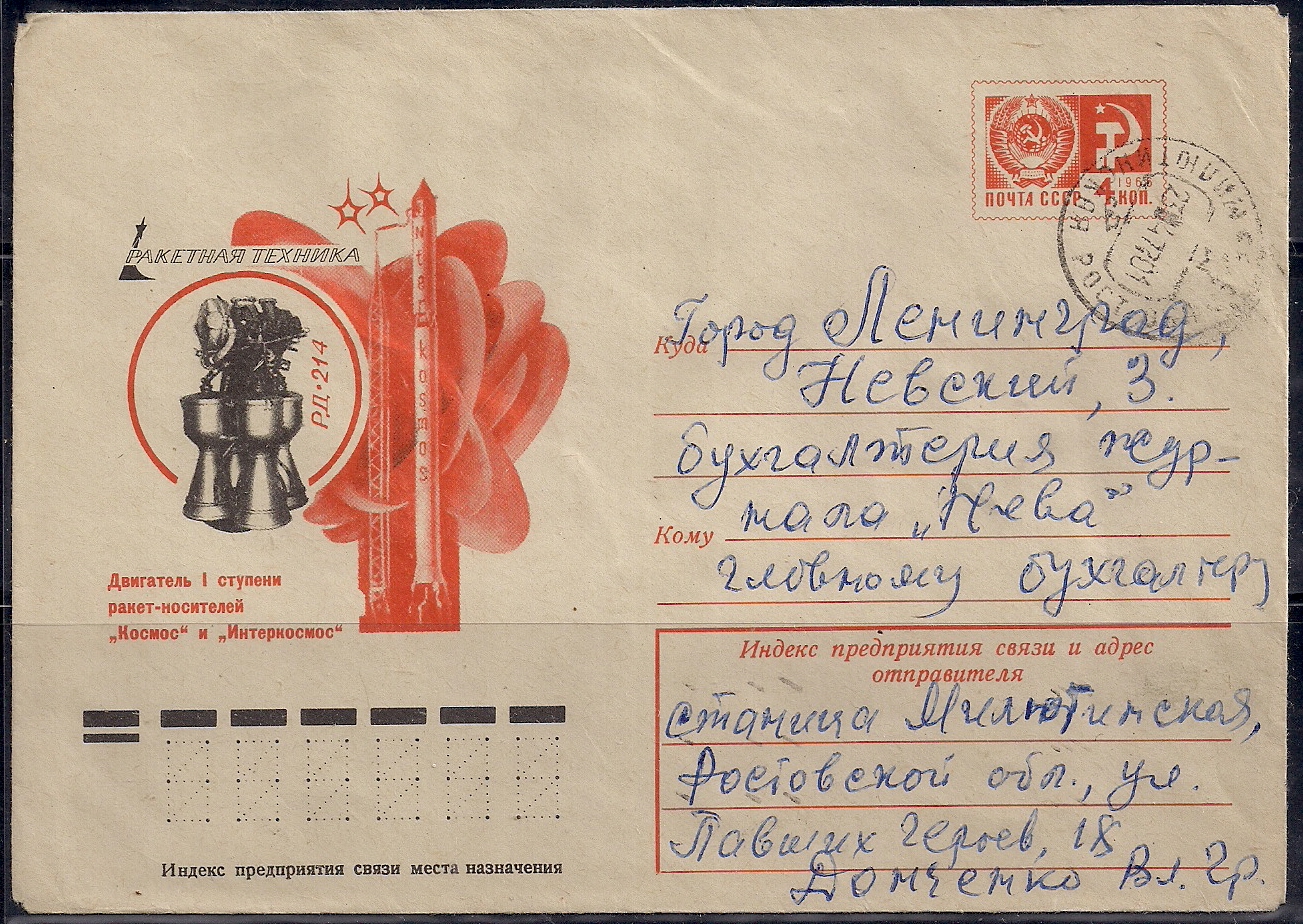 ПОЧТА СССР
1966
4 КОП.
РАКЕТНАЯ ТЕХНИКА
РД·214
Интеркосмос
Двигатель I ступени
ракет-носителей
„Космос“ и „Интеркосмос“
Куда Город Ленинград,
Невский, 3.
бухгалтерия жур-
нала „Нева“
Кому
главному бухгалтеру
Индекс предприятия связи и адрес
отправителя
станица Милютинская,
Ростовской обл., ул.
Павших Героев, 18
Донченко Вл. Гр.
Индекс предприятия связи места назначения